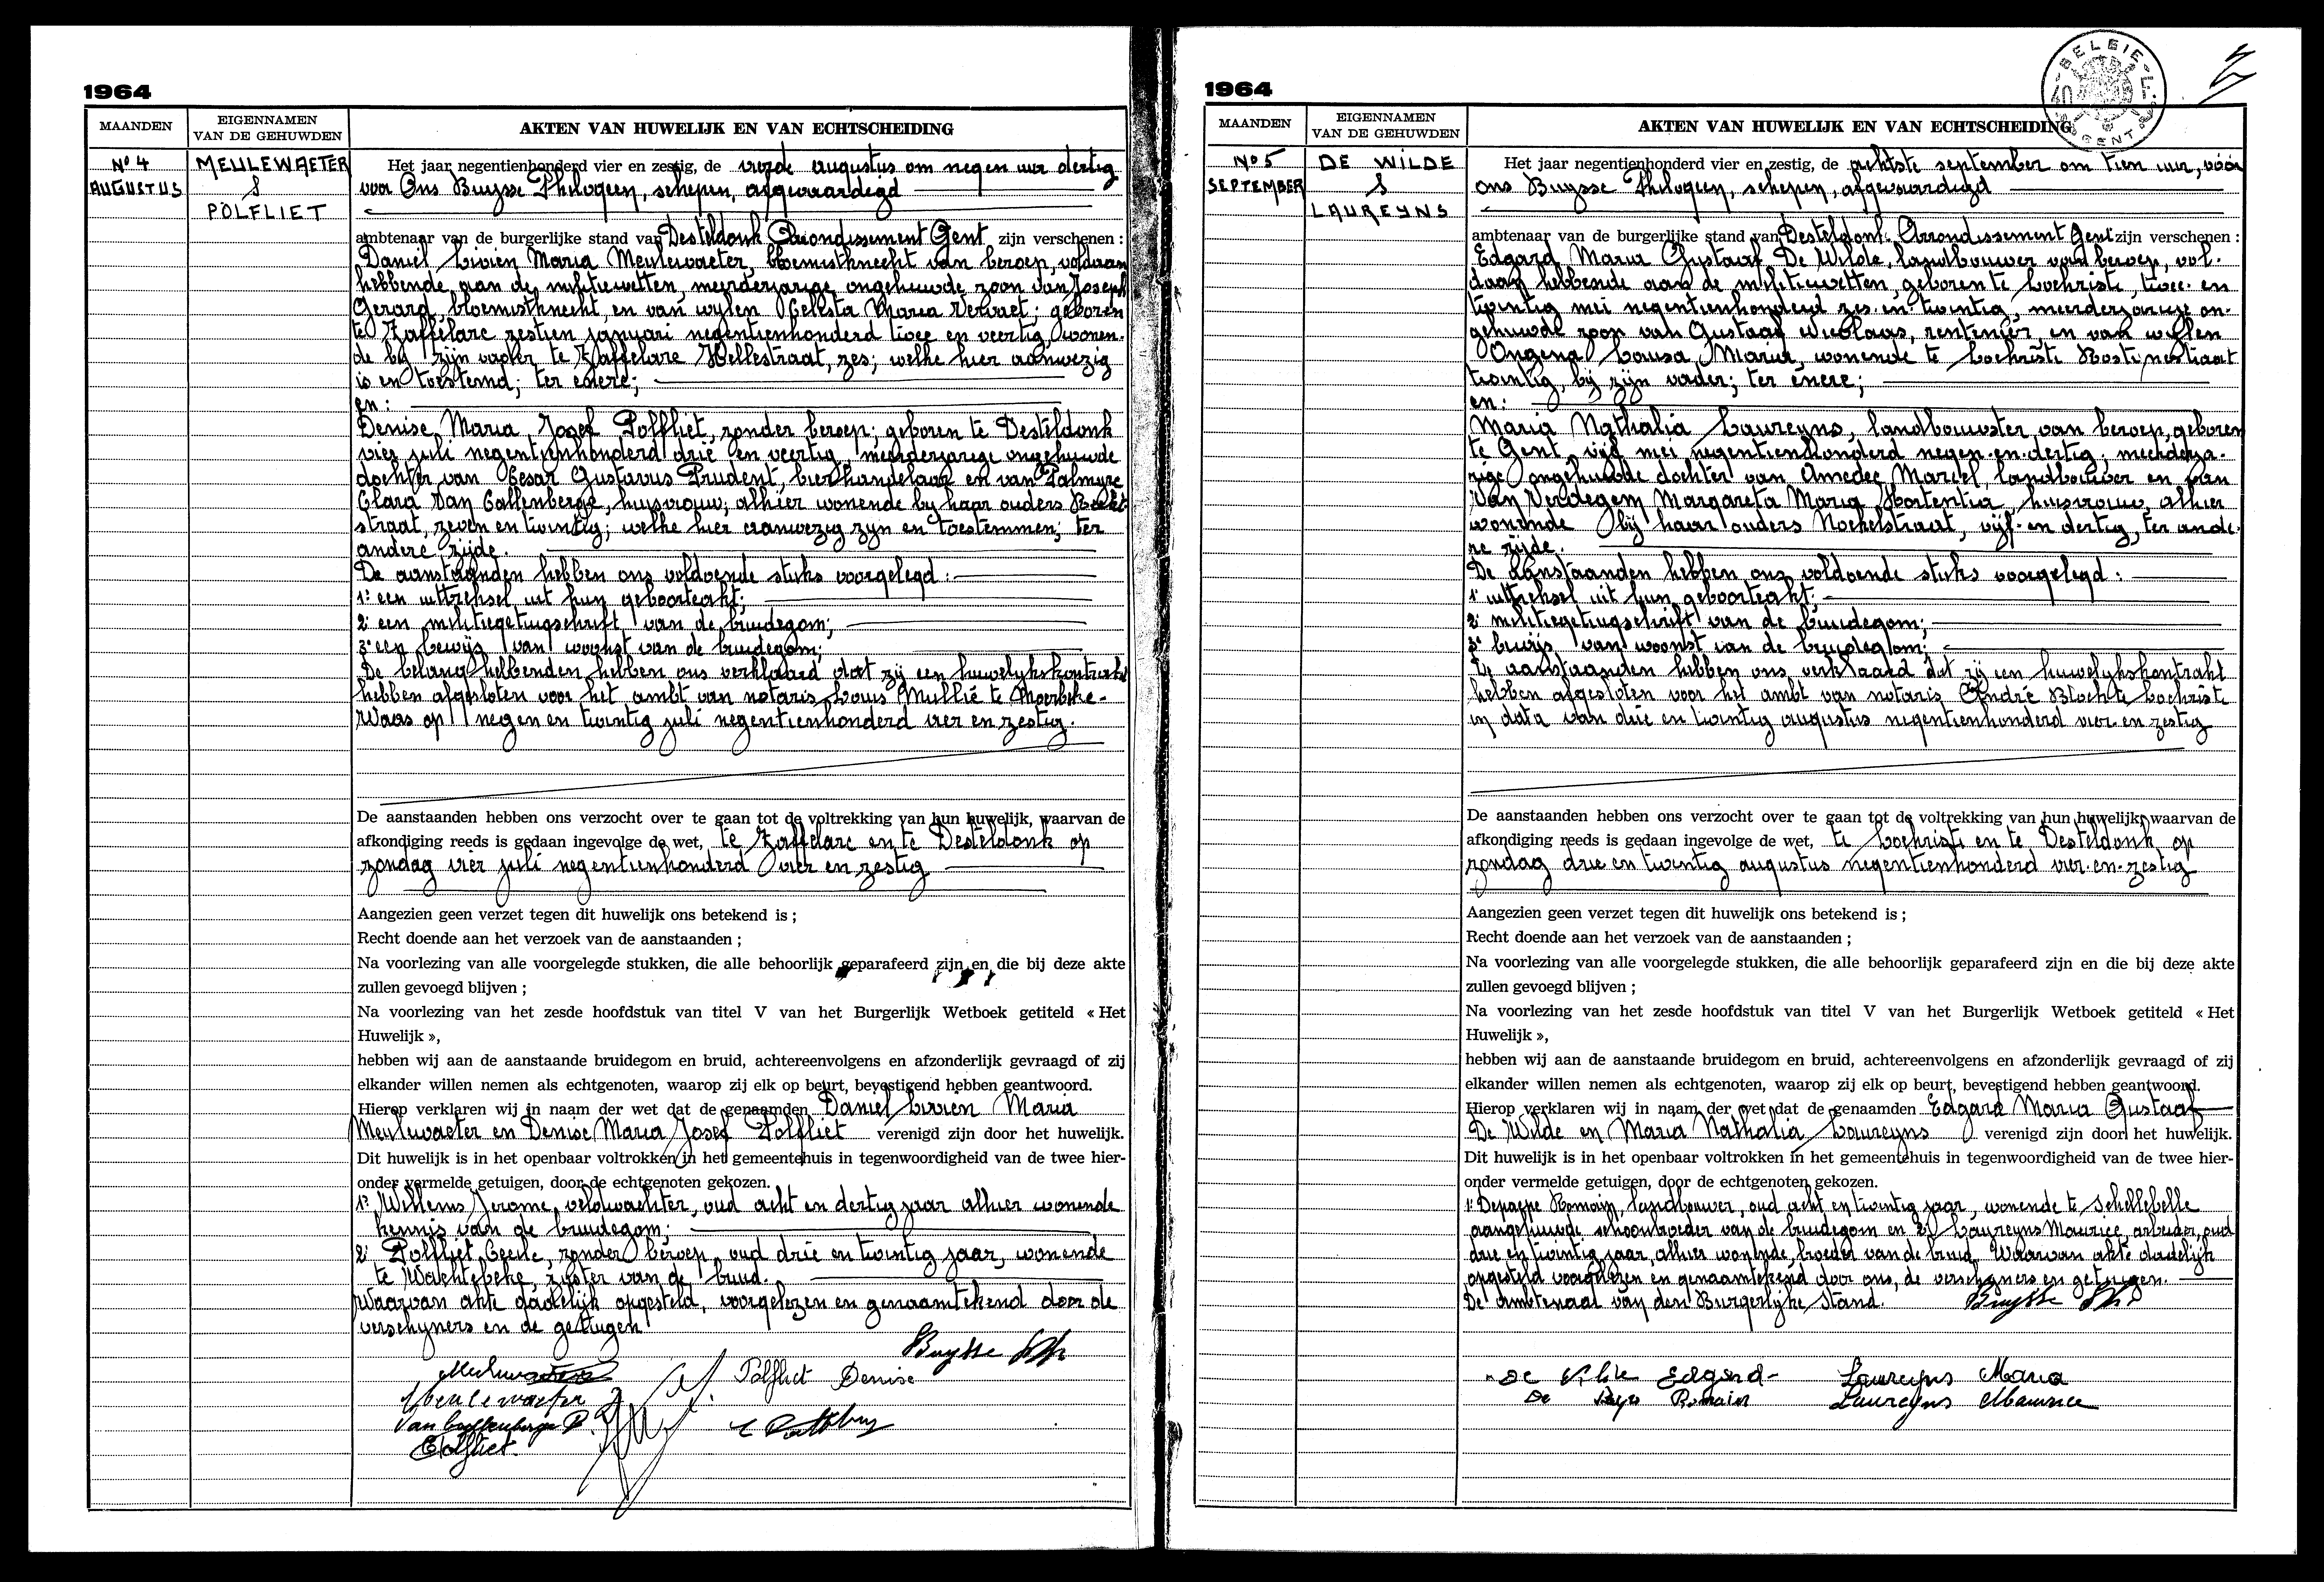 1964
MAANDEN
EIGENNAMEN
VAN DE GEHUWDEN
AKTEN VAN HUWELIJK EN VAN ECHTSCHEIDING
Nº 4
AUGUSTUS
MEULEWAETER
&
POLFLIET
Het jaar negentienhonderd vier en zestig, de vierde augustus om negen uur dertig
voor Ons Buysse Philogeen, schepen, afgevaardigd
ambtenaar van de burgerlijke stand van Desteldonk Arrondissement Gent zijn verschenen :
Daniël Livien Maria Meulewaeter, bloemistknecht van beroep, voldaan
hebbende aan de militiewetten, meerderjarige ongehuwde zoon van Joseph
Gerard, bloemistknecht, en van wylen Celesta Maria Vervaet; geboren
te Zaffelare zestien januari negentienhonderd twee en veertig, wonen-
de bij zijn vader te Zaffelare Hellestraat, zes; welke hier aanwezig
is en toestemd; ter enere;
en :
Denise Maria Jozef Polfliet, zonder beroep; geboren te Desteldonk
vier juli negentienhonderd drie en veertig, meerderjarige ongehuwde
dochter van Cesar Gustavus Prudent, bierhandelaar en van Palmyre
Clara Van Caltenberge, huisvrouw; alhier wonende by haar ouders
straat, zeven en twintig; welke hier aanwezig zyn en toestemmen; ter
andere zijde.
De aanstaanden hebben ons voldoende stuks voorgelegd :
1º een uittreksel uit hun geboorteakt;
2º een militiegetuigschrift van de bruidegom;
3º een bewijs van woonst van de bruidegom;
De belanghebbenden hebben ons verklaard dat zij een huwelykskontrakt
hebben afgesloten voor het ambt van notaris Louis Mullié te Moerbeke-
Waas op negen en twintig juli negentienhonderd vier en zestig.
De aanstaanden hebben ons verzocht over te gaan tot de voltrekking van hun huwelijk, waarvan de
afkondiging reeds is gedaan ingevolge de wet, te Zaffelare en te Desteldonk op
zondag vier juli negentienhonderd vier en zestig
Aangezien geen verzet tegen dit huwelijk ons betekend is ;
Recht doende aan het verzoek van de aanstaanden ;
Na voorlezing van alle voorgelegde stukken, die alle behoorlijk geparafeerd zijn en die bij deze akte
zullen gevoegd blijven ;
Na voorlezing van het zesde hoofdstuk van titel V van het Burgerlijk Wetboek getiteld « Het
Huwelijk »,
hebben wij aan de aanstaande bruidegom en bruid, achtereenvolgens en afzonderlijk gevraagd of zij
elkander willen nemen als echtgenoten, waarop zij elk op beurt, bevestigend hebben geantwoord.
Hierop verklaren wij in naam der wet dat de genaamden Daniël Livien Maria
Meulewaeter en Denise Maria Josef Polfliet verenigd zijn door het huwelijk.
Dit huwelijk is in het openbaar voltrokken in het gemeentehuis in tegenwoordigheid van de twee hier-
onder vermelde getuigen, door de echtgenoten gekozen.
1º Willems Jerome, veldwachter, oud acht en dertig jaar alhier wonende
kennis van de bruidegom;
2º Polfliet Cecile, zonder beroep, oud drie en twintig jaar, wonende
te Wachtebeke, zuster van de bruid.
Waarvan akte dadelijk opgesteld, voorgelezen en genaamtekend door de
verschyners en de getuigen
Buysse Ph
Polfliet Denise
Meulewaeter
Van Caltenberge P.
C Polfliet
1964
MAANDEN
EIGENNAMEN
VAN DE GEHUWDEN
AKTEN VAN HUWELIJK EN VAN ECHTSCHEIDING
BELGIE
GENT
Nº 5
SEPTEMBER
DE WILDE
&
LAUREYNS
Het jaar negentienhonderd vier en zestig, de achtste september om tien uur, vóór
ons Buysse Philogeen, schepen, afgevaardigd
ambtenaar van de burgerlijke stand van Desteldonk Arrondissement Gent zijn verschenen :
Edgard Maria Gustaaf De Wilde, landbouwer van beroep, vol-
daan hebbende aan de militiewetten, geboren te Lochristi, twee- en
twintig mei negentienhonderd zes-en-twintig, meerderjarige on-
gehuwde zoon van Gustaaf Nicolaas, rentenier, en van wylen
Ongena Louisa Maria, wonende te Lochristi Hostynestraat
twintig, bij zijn vader; ter enere;
en :
Maria Nathalia Laureyns, landbouwster van beroep, geboren
te Gent, vijf mei negentienhonderd negen-en-dertig; meerderja-
rige ongehuwde dochter van Amedee Marcel, landbouwer en van
Van Verdegem Margareta Maria Hortentia, huisvrouw, alhier
wonende bij haar ouders Nokerstraat, vijf-en dertig, ter ande-
re zijde.
De aanstaanden hebben ons voldoende stuks voorgelegd :
1º uittreksel uit hun geboorteakt;
2º militiegetuigschrift van de bruidegom;
3º bewijs van woonst van de bruidegom;
De aanstaanden hebben ons verklaard dat zij een huwelykskontrakt
hebben afgesloten voor het ambt van notaris André Bloch te Lochristi
in data van drie en twintig augustus negentienhonderd vier en zestig
De aanstaanden hebben ons verzocht over te gaan tot de voltrekking van hun huwelijk, waarvan de
afkondiging reeds is gedaan ingevolge de wet, te Lochristi en te Desteldonk op
zondag drie en twintig augustus negentienhonderd vier-en-zestig
Aangezien geen verzet tegen dit huwelijk ons betekend is ;
Recht doende aan het verzoek van de aanstaanden ;
Na voorlezing van alle voorgelegde stukken, die alle behoorlijk geparafeerd zijn en die bij deze akte
zullen gevoegd blijven ;
Na voorlezing van het zesde hoofdstuk van titel V van het Burgerlijk Wetboek getiteld « Het
Huwelijk »,
hebben wij aan de aanstaande bruidegom en bruid, achtereenvolgens en afzonderlijk gevraagd of zij
elkander willen nemen als echtgenoten, waarop zij elk op beurt, bevestigend hebben geantwoord.
Hierop verklaren wij in naam der wet dat de genaamden Edgard Maria Gustaaf
De Wilde en Maria Nathalia Laureyns verenigd zijn door het huwelijk.
Dit huwelijk is in het openbaar voltrokken in het gemeentehuis in tegenwoordigheid van de twee hier-
onder vermelde getuigen, door de echtgenoten gekozen.
1º Depaepe Romain, landbouwer, oud acht en twintig jaar, wonende te Schellebelle
aangehuwde schoonbroeder van de bruidegom en 2º Laureyns Maurice, arbeider, oud
drie en twintig jaar, alhier wonende, broeder van de bruid. Waarvan akte dadelijk
opgesteld voorgelezen en genaamtekend door ons, de verschyners en getuigen.
De Ambtenaar van den Burgerlijke Stand. Buysse Ph
De Wilde Edgard Laureyns Maria
De Romain Laureyns Maurice